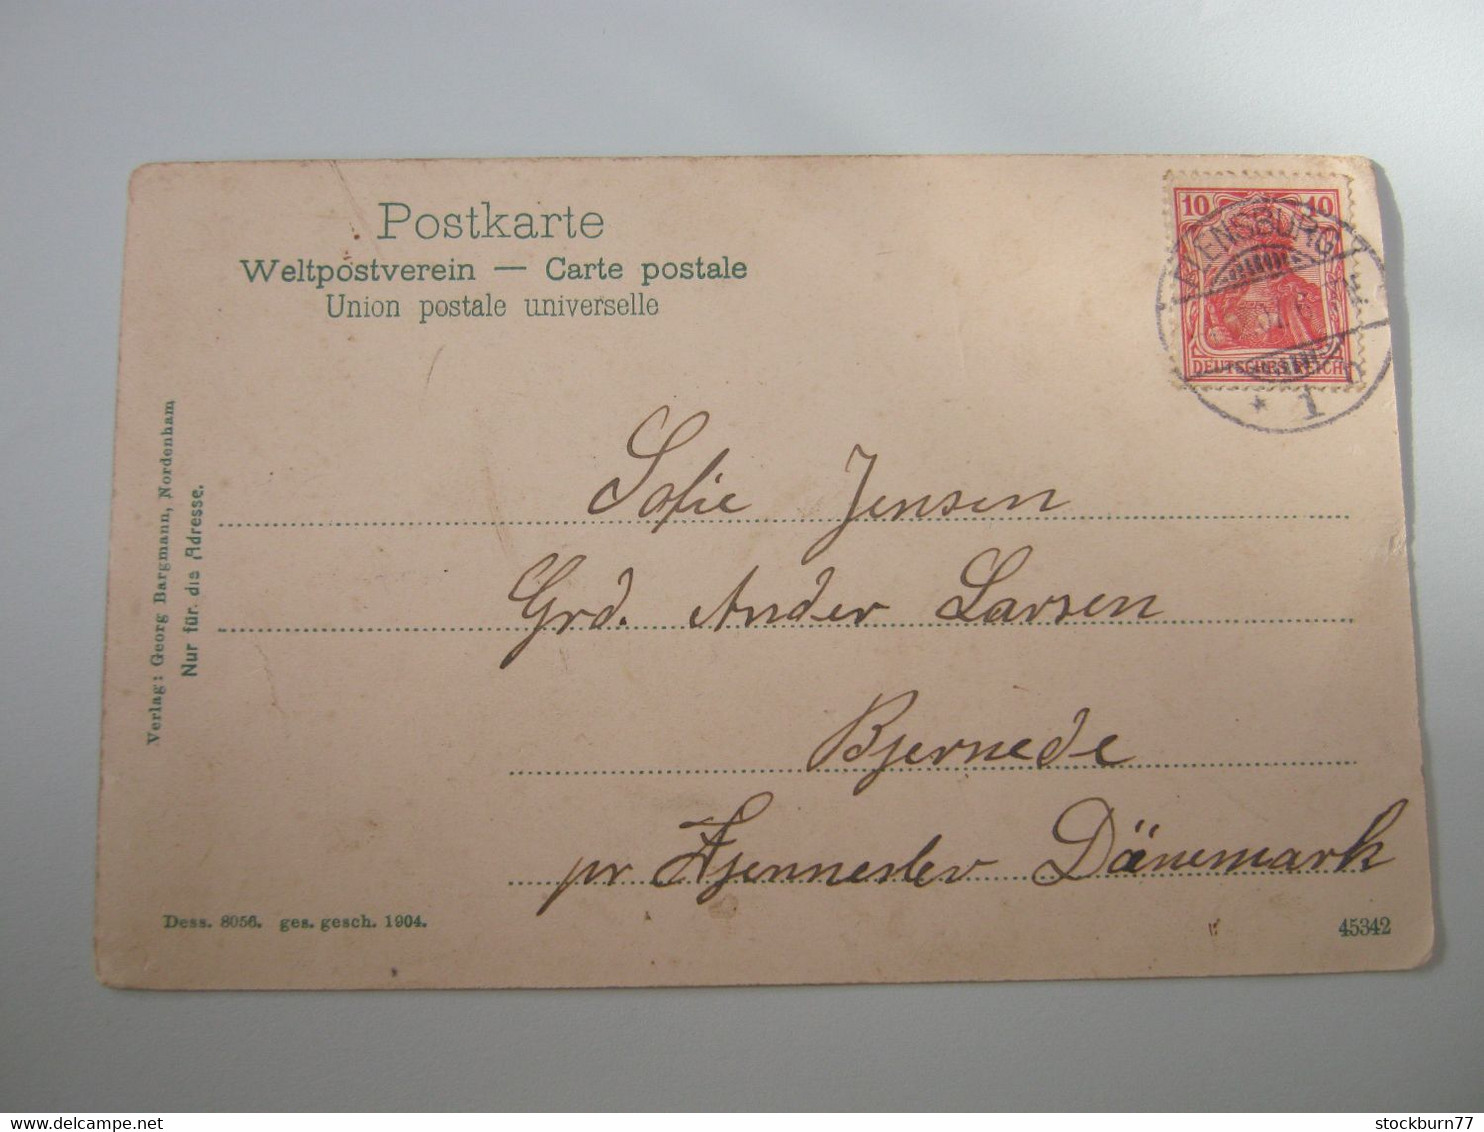 Postkarte
Weltpostverein — Carte postale
Union postale universelle
10 10
FLENSBURG
DEUTSCHES REICH
* 1
Verlag: Georg Bargmann, Nordenham
Nur für die Adresse.
Sofie Jensen
Grd. Ander Larsen
Bjernede
pr Fjenneslev Dänemark
Dess. 8056. ges. gesch. 1904.
45342
delcampe.net
stockburn77